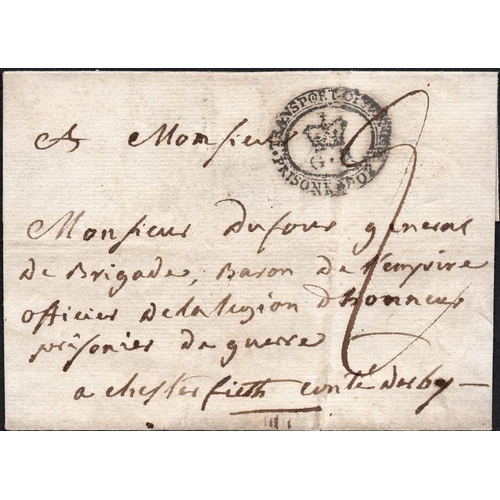 A Monsieur
TRANSPORT OFFICE
PRISONERS OF WAR
G R
3
Monsieur dufour general
de Brigade, Baron de l'empire
officier de la legion d honneur
prisonier de guerre
a chesterfieth conté derby